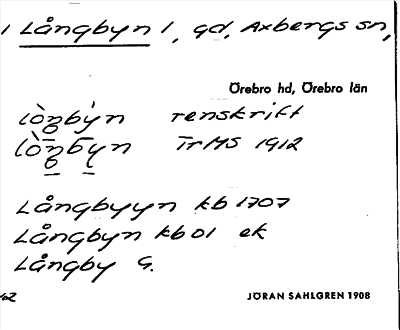 1 Långbyn 1, gd, Axbergs sn,
Örebro hd, Örebro län
lòŋbẏn renskrift
lòŋ̲by̲n TrMS 1912
Långbyyn kb 1707
Långbyn kb 01 ek
Långby G.
JÖRAN SAHLGREN 1908